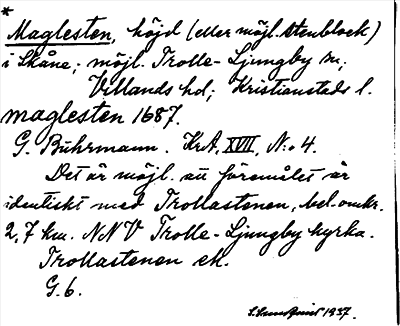 *
Maglesten, höjd (eller möjl. stenblock)
i Skåne; möjl. Trolle-Ljungby sn;
Villands hd; Kristianstads l.
maglesten 1687.
G. Buhrmann. KrA, XVII, N:o 4.
Det är möjl. att föremålet är
identiskt med Trollastenen, bel. omkr.
2,7 km. NNV Trolle-Ljungby kyrka.
Trollastenen ek.
G. 6.
S. Sundquist 1937.